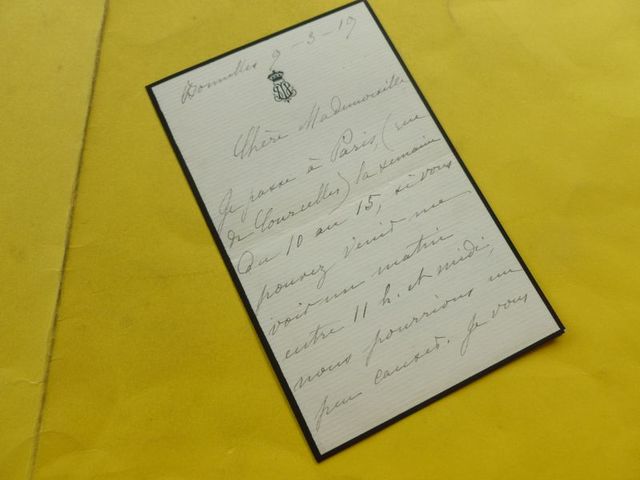 Bonnelles 9-3-19
Chère Mademoiselle
Je passe à Paris, (rue
de Courcelles) la semaine
Du 10 au 15, si vous
pouvez venir me
voir un matin
entre 11 h. et midi,
nous pourrions un
peu causer. Je vous